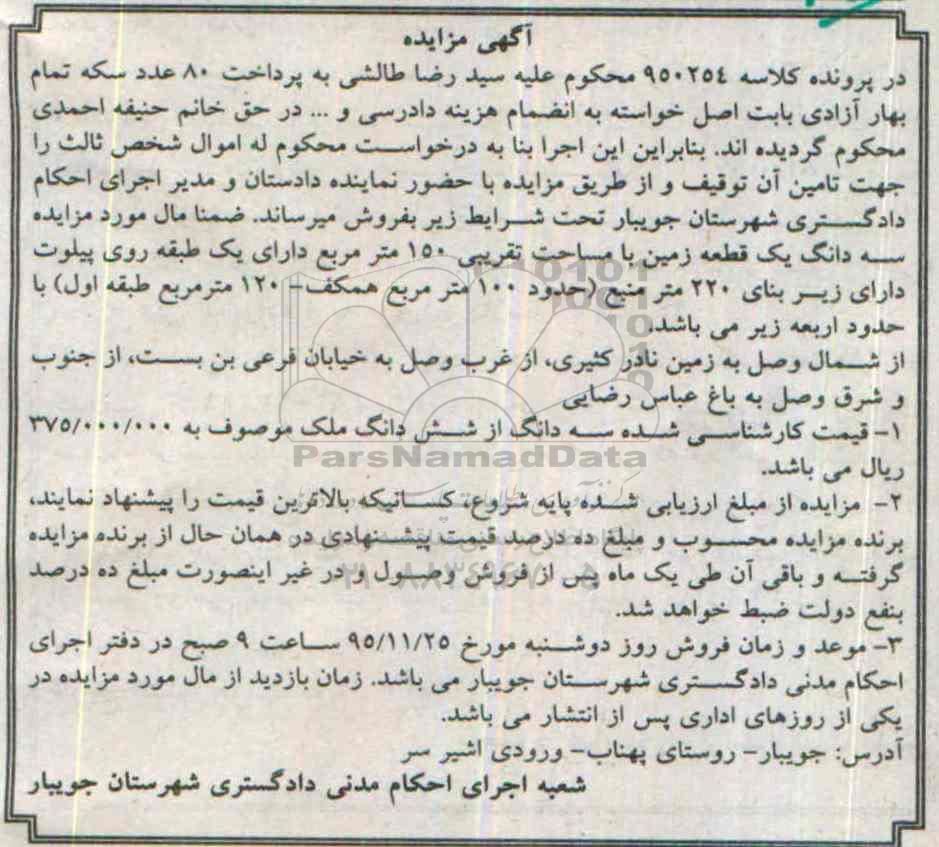 آگهی مزایده
در پرونده کلاسه ۹۵۰۲۵۴ محکوم علیه سید رضا طالشی به پرداخت ۸۰ عدد سکه تمام
بهار آزادی بابت اصل خواسته به انضمام هزینه دادرسی و ... در حق خانم حنیفه احمدی
محکوم گردیده اند. بنابراین این اجرا بنا به درخواست محکوم له اموال شخص ثالث را
جهت تامین آن توقیف و از طریق مزایده با حضور نماینده دادستان و مدیر اجرای احکام
دادگستری شهرستان جویبار تحت شرایط زیر بفروش میرساند. ضمنا مال مورد مزایده
سه دانگ یک قطعه زمین با مساحت تقریبی ۱۵۰ متر مربع دارای یک طبقه روی پیلوت
دارای زیر بنای ۲۲۰ متر منبع (حدود ۱۰۰ متر مربع همکف- ۱۲۰ مترمربع طبقه اول) با
حدود اربعه زیر می باشد.
از شمال وصل به زمین نادر کثیری، از غرب وصل به خیابان فرعی بن بست، از جنوب
و شرق وصل به باغ عباس رضایی
۱- قیمت کارشناسی شده سه دانگ از شش دانگ ملک موصوف به ۳۷۵/۰۰۰/۰۰۰
ریال می باشد.
ParsNamadData
۲- مزایده از مبلغ ارزیابی شده پایه شروع، کسانیکه بالاترین قیمت را پیشنهاد نمایند،
برنده مزایده محسوب و مبلغ ده درصد قیمت پیشنهادی در همان حال از برنده مزایده
گرفته و باقی آن طی یک ماه پس از فروش وصول و در غیر اینصورت مبلغ ده درصد
بنفع دولت ضبط خواهد شد.
۳- موعد و زمان فروش روز دوشنبه مورخ ۹۵/۱۱/۲۵ ساعت ۹ صبح در دفتر اجرای
احکام مدنی دادگستری شهرستان جویبار می باشد. زمان بازدید از مال مورد مزایده در
یکی از روزهای اداری پس از انتشار می باشد.
آدرس: جویبار- روستای پهناب- ورودی اشیر سر
شعبه اجرای احکام مدنی دادگستری شهرستان جویبار